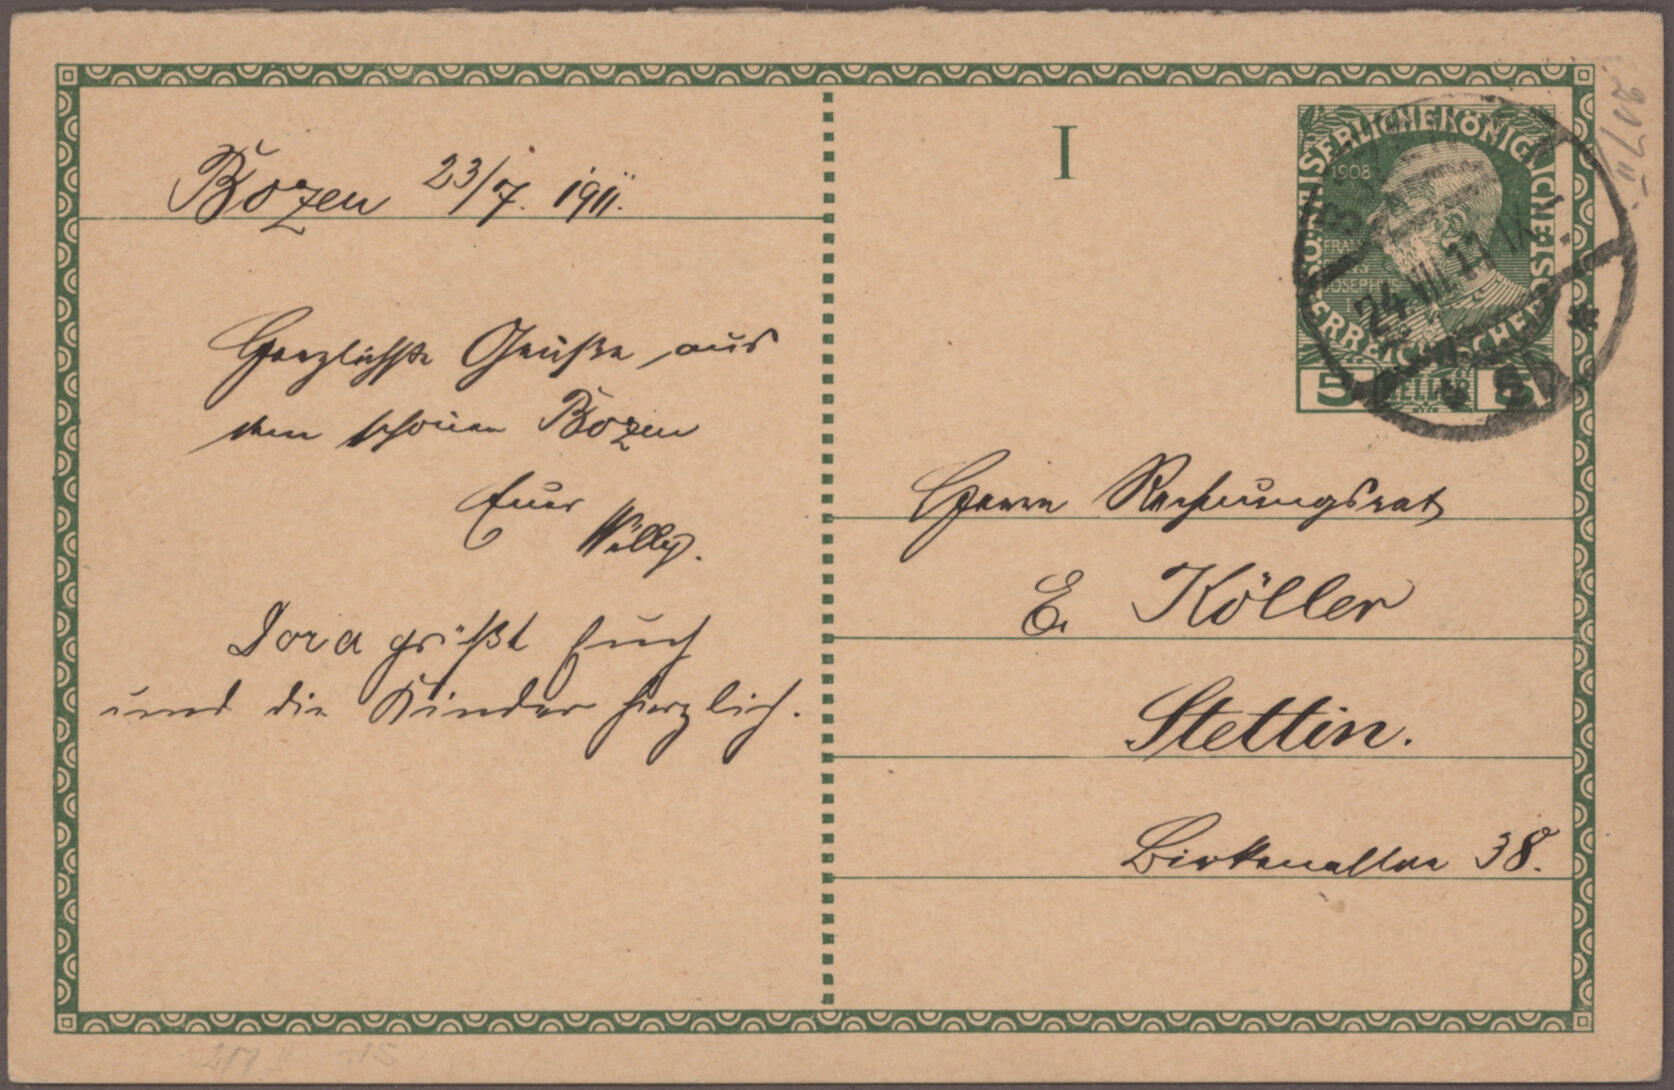 Bozen 23/7. 1911.
Herzlichste Grüße aus
dem schönen Bozen
Euer
Willy.
Dora grüßt Euch
und die Kinder herzlich.
I
KAISERLICHE KÖNIGLICHE ÖSTERREICHISCHE
1908
FRANCISCUS
JOSEPHUS I
5 HELLER 5
24 VII 11 IX
Herrn Rechnungsrat
E. Köller
Stettin.
Birkenallee 38.